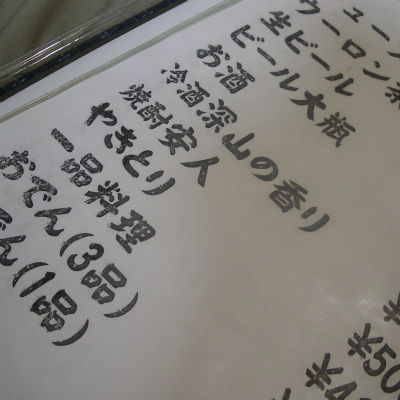 ュー
ウーロン茶
生ビール
ビール大瓶
お酒
冷酒深山の香り
焼酎安人
やきとり
一品料理
おでん(3品)
でん(1品)
¥
¥50
¥4